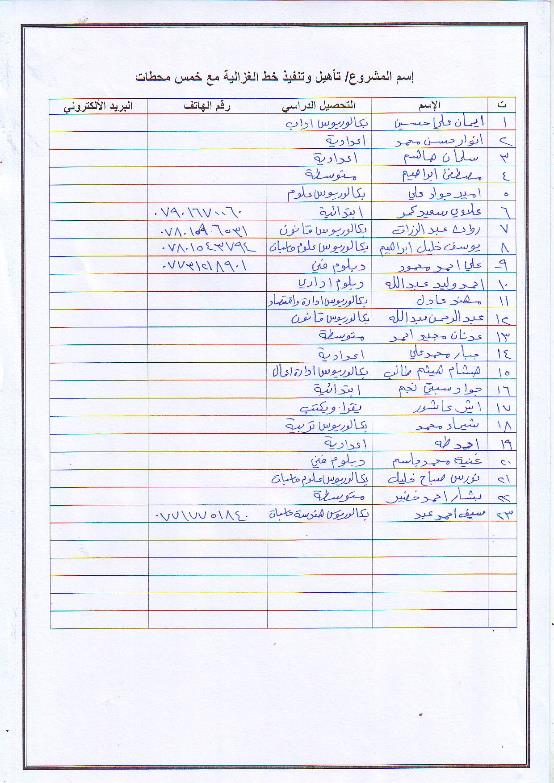 إسم المشروع/ تأهيل وتنفيذ خط الغزالية مع خمس محطات
ت الإسم التحصيل الدراسي رقم الهاتف البريد الألكتروني
١ ايمان علي حسين بكالوريوس اداب
٢ انوار حسن محمد اعدادية
٣ سلمان هاشم اعدادية
٤ مصطفى ابراهيم متوسطة
٥ امير جواد علي بكالوريوس علوم
٦ سعيد ابتدائية ٠٧٩٠١٦٧٠٠٦٠
٧ عبد الرزاق بكالوريوس قانون ٠٧٨٠١٥٩٦٥٣١
٨ يوسف خليل ابراهيم بكالوريوس علوم حاسبات
٩ علي احمد محمود دبلوم فني
١٠ احمد وليد عبدالله دبلوم اداري
١١ مهند عادل بكالوريوس ادارة واقتصاد
١٢ عبدالرحمن عبدالله بكالوريوس قانون
١٣ عدنان احمد متوسطة
١٤ جبار محمد علي اعدادية
١٥ هشام هيثم طالب بكالوريوس ادارة اعمال
١٦ جواد سبتي نجم ابتدائية
١٧ عاشور يقرا ويكتب
١٨ شيماء محمد بكالوريوس تربية
١٩ احمد طه اعدادية
٢٠ محمد جاسم دبلوم فني
٢١ نورس صباح خليل بكالوريوس علوم حاسبات
٢٢ بشار احمد خضير متوسطة
٢٣ سيف احمد عبد بكالوريوس هندسة حاسبات ٠٧٧١٧٧٥١٨٤٠